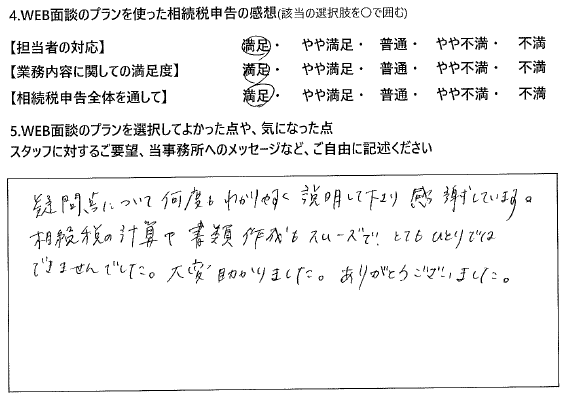 4.WEB面談のプランを使った相続税申告の感想(該当の選択肢を〇で囲む)
【担当者の対応】 満足・ やや満足・ 普通・ やや不満・ 不満
【業務内容に関しての満足度】 満足・ やや満足・ 普通・ やや不満・ 不満
【相続税申告全体を通して】 満足・ やや満足・ 普通・ やや不満・ 不満
5.WEB面談のプランを選択してよかった点や、気になった点
スタッフに対するご要望、当事務所へのメッセージなど、ご自由に記述ください
疑問点について何度もわかりやすく説明して下さり感謝しています。
相続税の計算や書類作成もスムーズで、とてもひとりでは
できませんでした。大変助かりました。ありがとうございました。